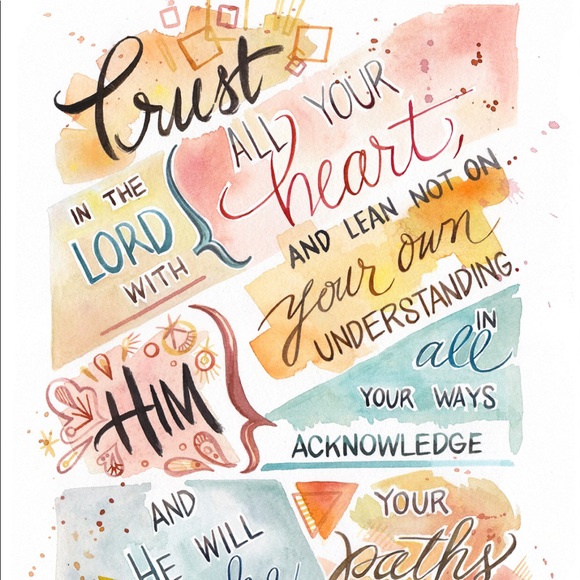 Trust
IN THE
LORD
WITH
ALL YOUR
heart,
AND LEAN NOT ON
your own
UNDERSTANDING.
IN
all
YOUR WAYS
ACKNOWLEDGE
HIM
AND
HE WILL
YOUR
paths